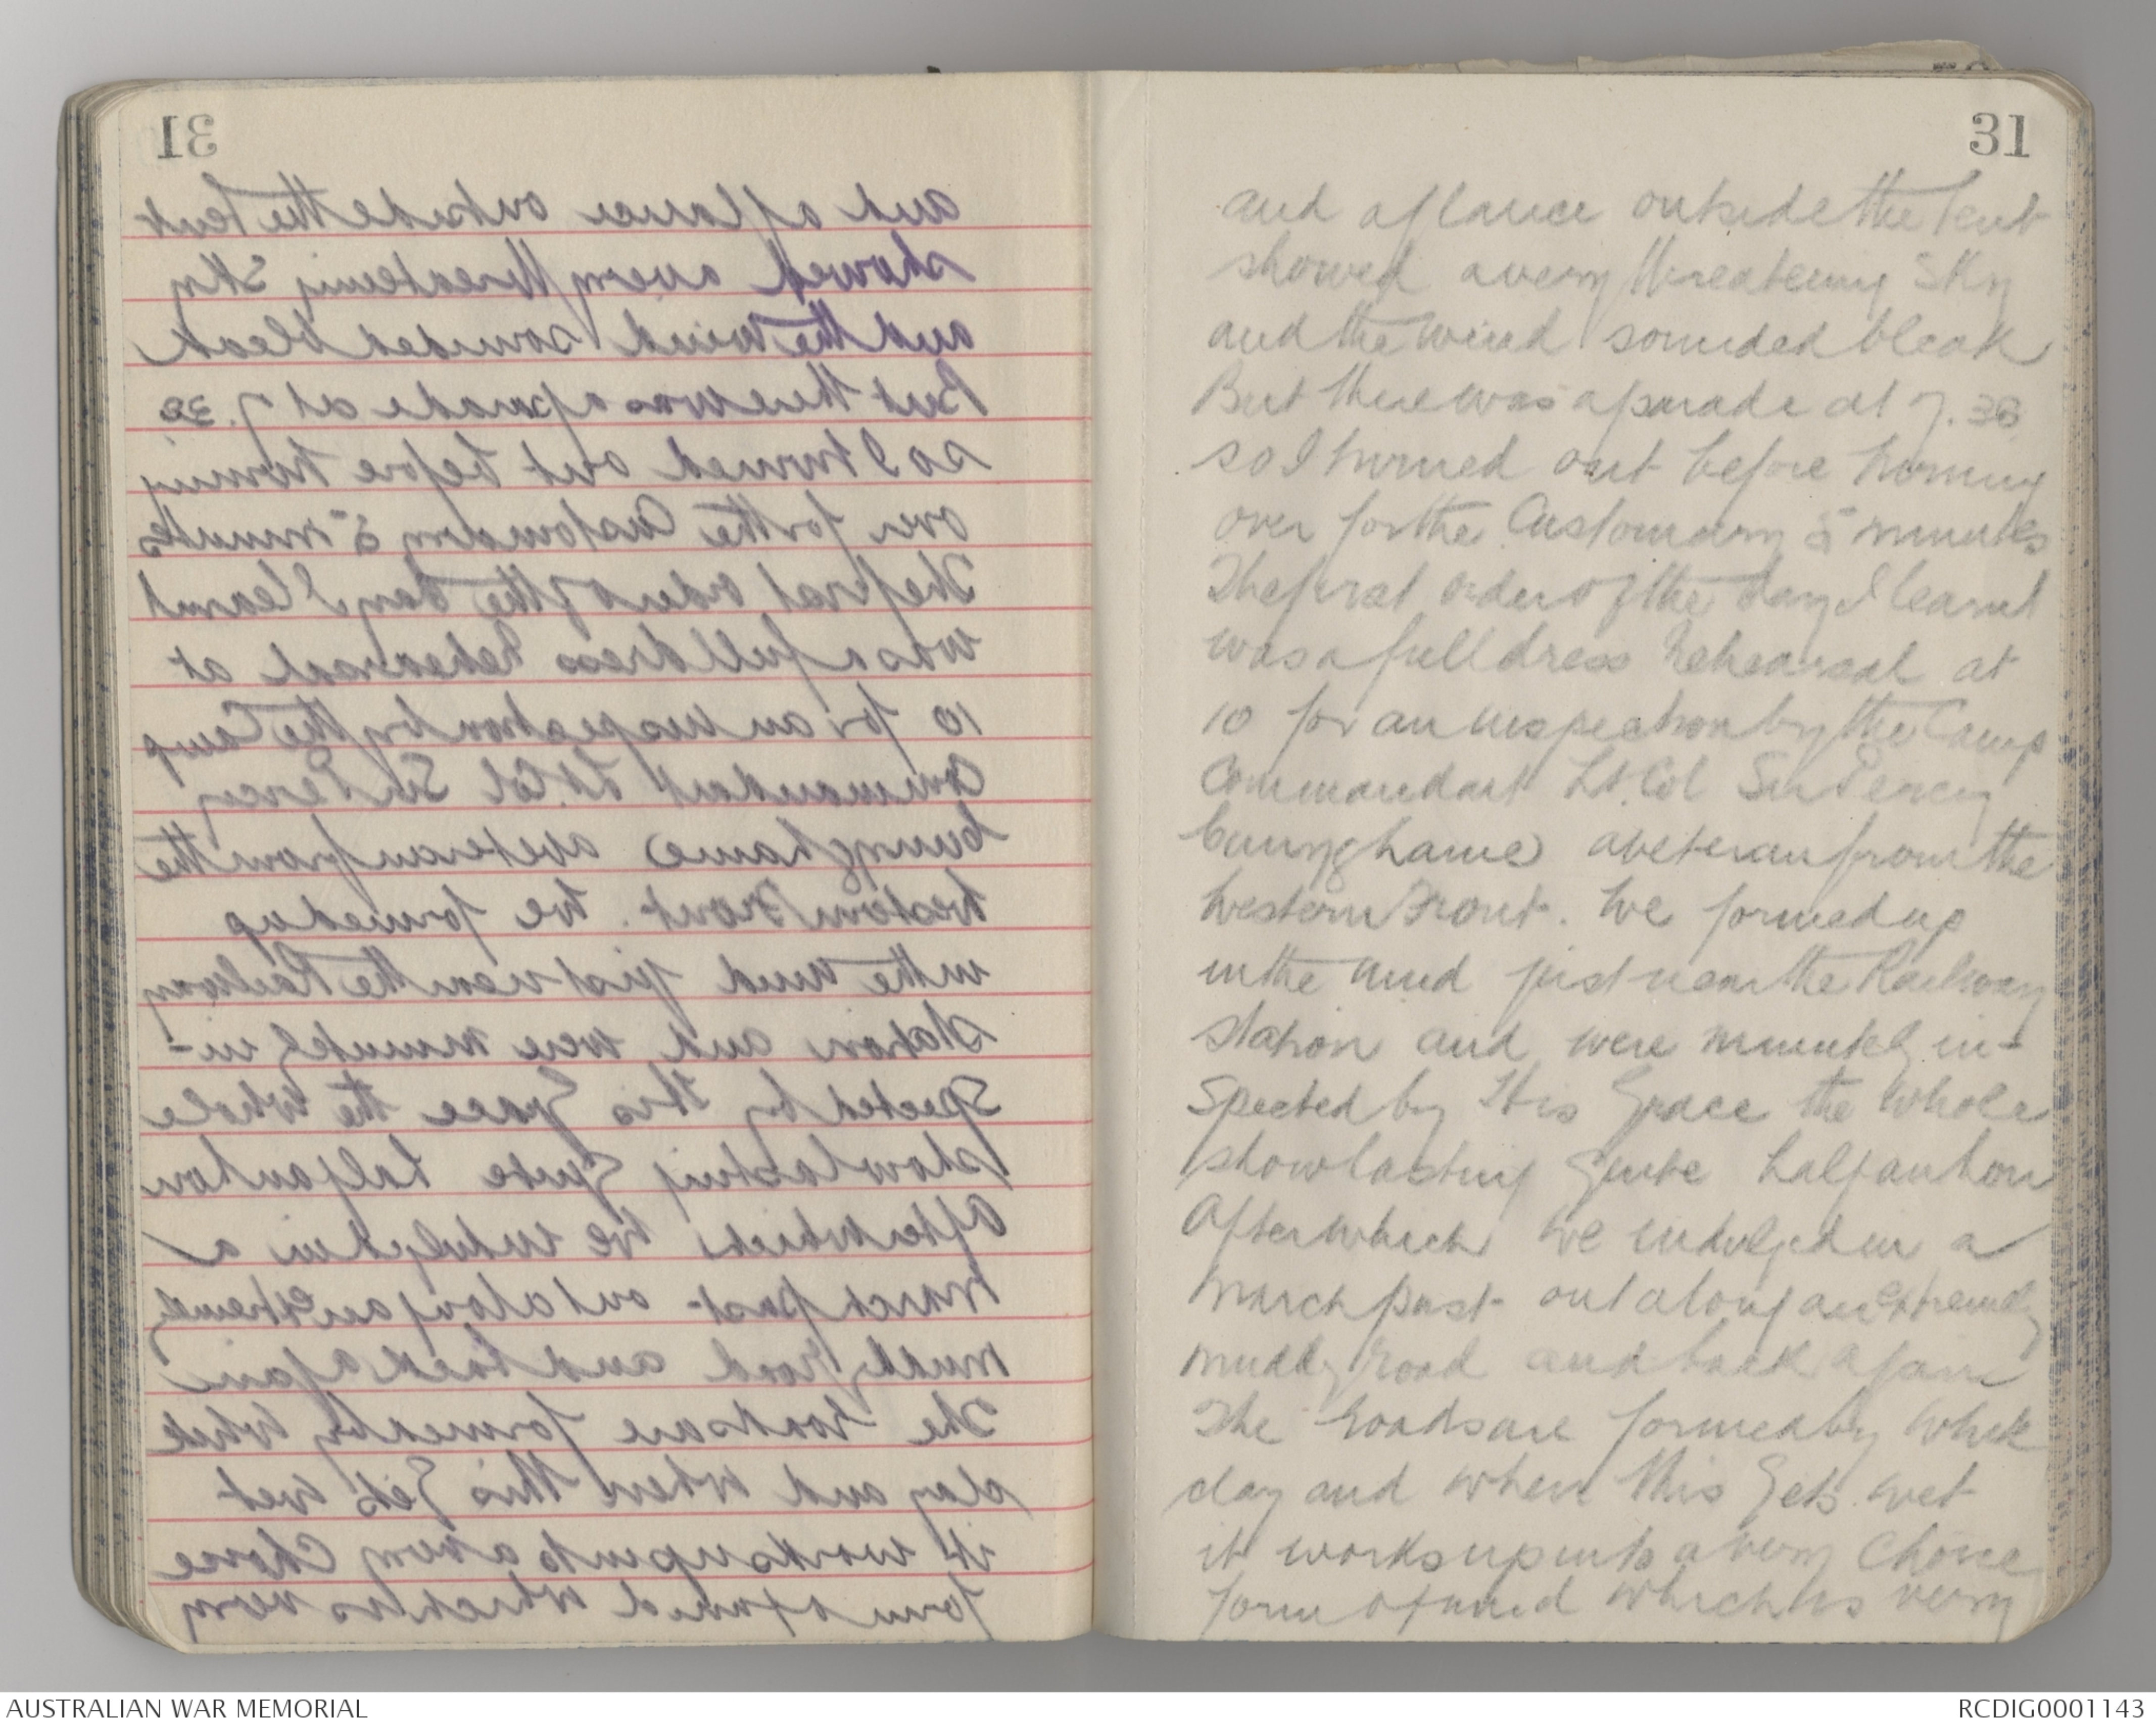 31
and a glance outside the tent
showed a very threatening sky
and the wind sounded bleak
But there was a parade at 7.30
so I turned out before turning
over for the Customary 5 minutes
The first order of the day I learnt
was a full dress rehearsal at
10 for an inspection by the Camp
Commandant Lt. Col Sir Percy
Cunynghame a veteran from the
Western Front. We formed up
in the mud just near the Railway
station and were minutely in-
spected by His Grace the whole
show lasting Quite half an hour
After which we indulged in a
March past out along an extremely
muddy road and back again
The roads are formed by white
clay and when this Gets wet
it works up into a very Choice
form of mud which is very
31
AUSTRALIAN WAR MEMORIAL
RCDIG0001143